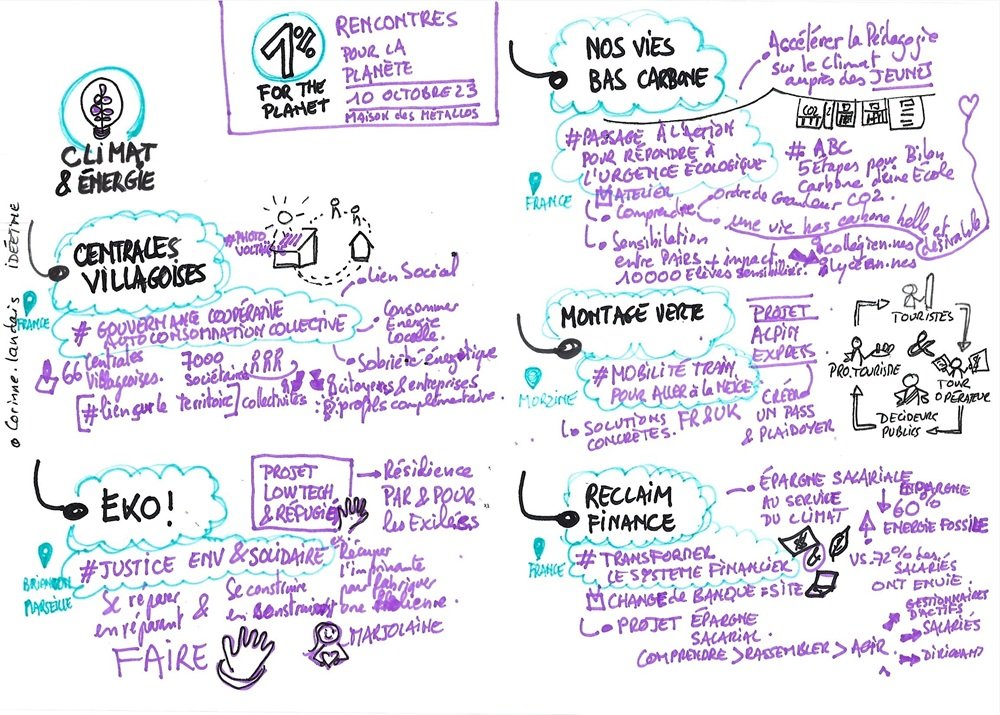 1%
FOR THE
PLANET
RENCONTRES
POUR LA
PLANÈTE
10 OCTOBRE 23
MAISON des MÉTALLOS
CLIMAT
& ÉNERGIE
© Corinne.landais IDÉETIME
CENTRALES
VILLAGOISES
FRANCE
#PHOTO
VOLTAÏ
Lien Social
# GOUVERNANCE COOPÉRATIVE
AUTOCONSOMMATION COLLECTIVE
Consommer
Energie
Locale.
Sobriété énergétique
66 Centrales
Villageoises.
7000
sociétaires
[#lien sur le territoire] collectivités
& citoyens & entreprises
profils complémentaire.
EKO!
PROJET
LOWTECH
& RÉFUGIÉ
Résilience
PAR & POUR
les Exilées
BRIANÇON
MARSEILLE
#JUSTICE ENV & SOLIDAIRE
Récuper
l'imprimante
pour fabriquer
une éolienne.
Se réparer
en réparant
&
Se construire
en construisant
FAIRE
MARJOLAINE
NOS VIES
BAS CARBONE
Accélérer la Pédagogie
sur le climat
auprès des JEUNES
CO2
FRANCE
#PASSAGE À L'ACTION
POUR RÉPONDRE À
L'URGENCE ÉCOLOGIQUE
# ABC
5 étapes pour Bilan
Carbone d'une École
ATELIER
Comprendre
Ordre de Grandeur CO2.
une vie bas carbone belle et
désirable
Sensibilation
entre PAIRS + impact
10000 Elèves sensibilisé.
collégien.nes
& lycéen.nes
MONTAGE VERTE
PROJET
ALPIN
EXPRESS
MORZINE
#MOBILITÉ TRAIN
POUR ALLER à la NEIGE
SOLUTIONS
CONCRÈTES. FR & UK
CRÉER
UN PASS
& PLAIDOYER
TOURISTES
PRO.TOURISME
&
TOUR
OPÉRATEUR
DÉCIDEURS
PUBLICS
RECLAIM
FINANCE
ÉPARGNE SALARIALE
AU SERVICE
DU CLIMAT
ÉPARGNE
60%
ENERGIE FOSSILE
VS.72% des
SALARIÉS
ONT ENVIE.
FRANCE
# TRANSFORMER
LE SYSTÈME FINANCIER
&
CHANGE de BANQUE = SITE
PROJET ÉPARGNE
SALARIAL
COMPRENDRE > RASSEMBLER > AGIR.
GESTIONNAIRES
D'ACTIFS
SALARIÉS
DIRIGEANT